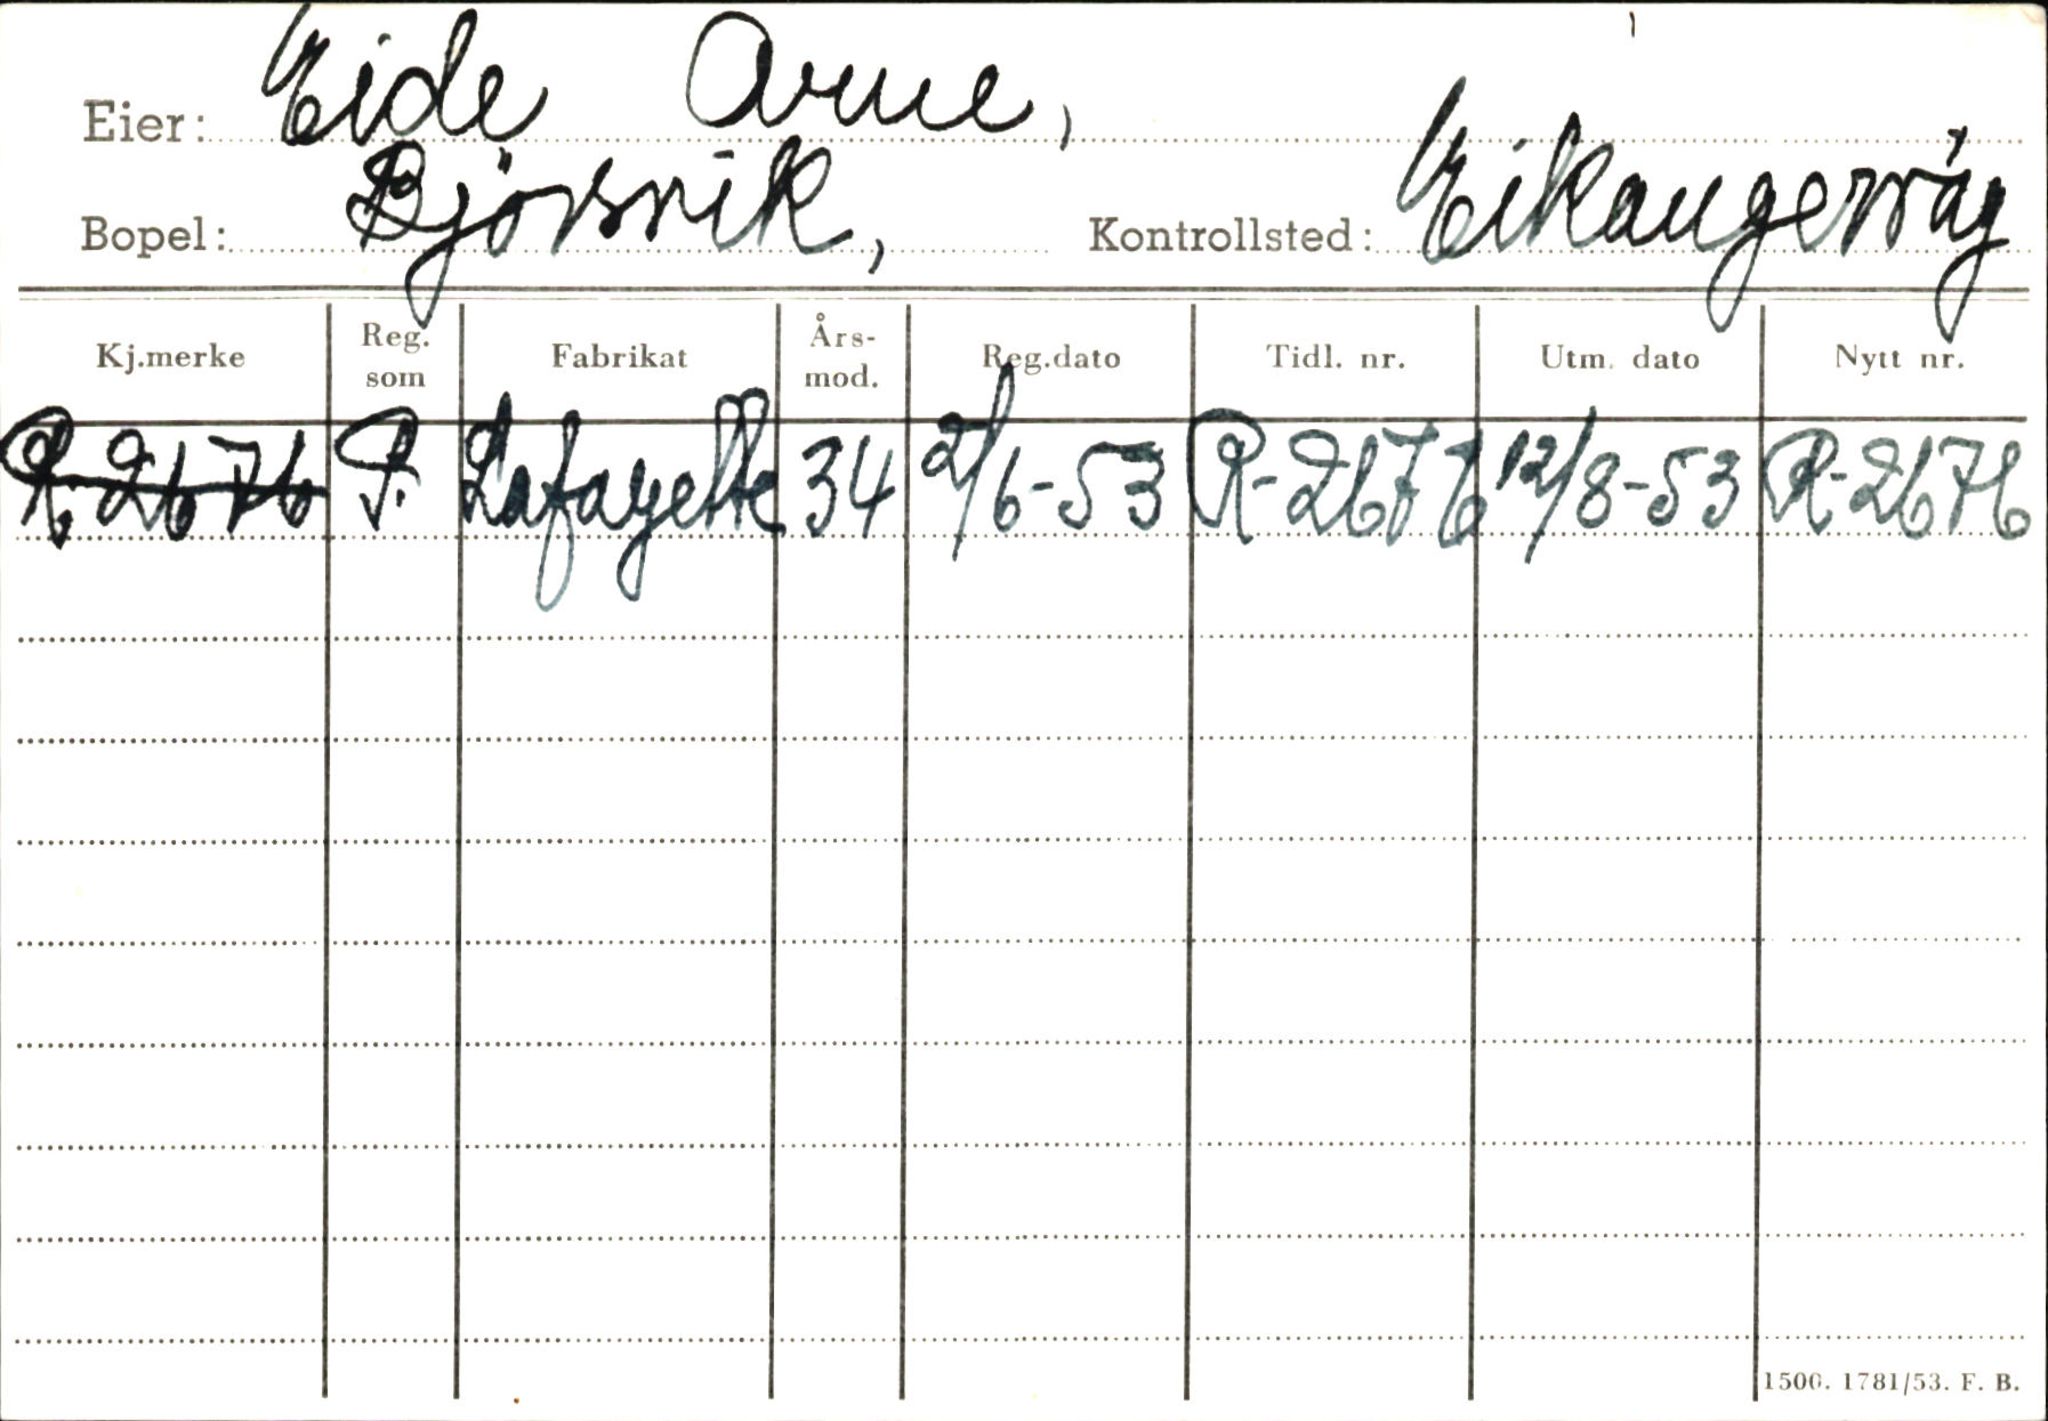 Eier: Eide Arne,
Bopel: Bjørsvik, Kontrollsted: Eikangervåg
Kj.merke Reg. som Fabrikat Års-mod. Reg.dato Tidl. nr. Utm. dato Nytt nr.
R-2676 P. Lafayette 34 2/6-53 R-2676 12/8-53 R-2676
1500. 1781/53. F. B.